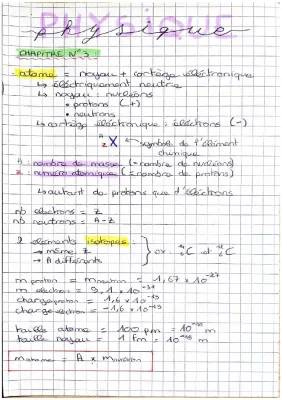 PHYSIQUE
physique
CHAPITRE N°3 :
atome = noyau + cortège électronique
↳ électriquement neutre
↳ noyau : nucléons
• protons (+)
• neutrons
↳ cortège électronique : électrons (-)
A
Z X
symbole de l'élément
chimique
A : nombre de masse (= nombre de nucléons)
Z : numéro atomique (= nombre de protons)
↳ autant de protons que d'électrons
nb électrons = Z
nb neutrons = A - Z
2 éléments isotopes :
→ même Z
→ A différents
ex : C et C
m proton = m neutron = 1,67 x 10⁻²⁷
m électron = 9,1 x 10⁻³¹
charge proton = 1,6 x 10⁻¹⁹
charge électron = -1,6 x 10⁻¹⁹
taille atome = 100 pm = 10⁻¹⁰ m
taille noyau = 1 fm = 10⁻¹⁵ m
m atome = A x m nucléon